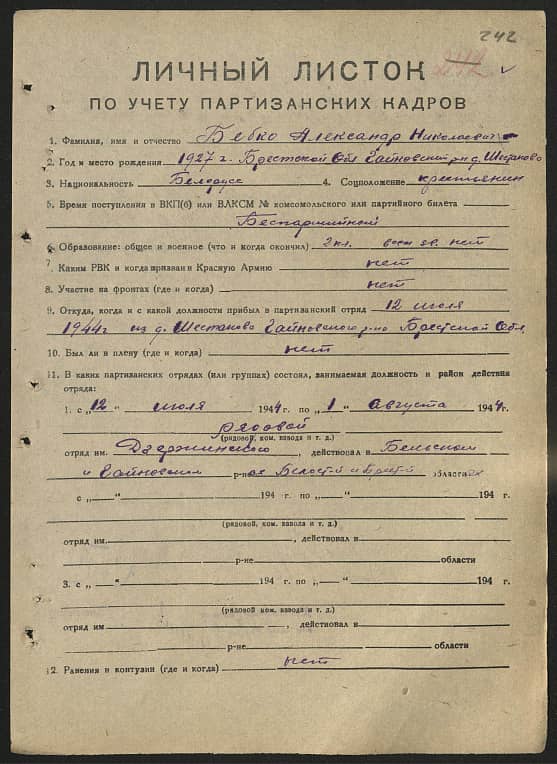 242
ЛИЧНЫЙ ЛИСТОК
ПО УЧЕТУ ПАРТИЗАНСКИХ КАДРОВ
1. Фамилия, имя и отчество Бебко Александр Николаевич
2. Год и место рождения 1927 г. Брестской Обл Гайновский р-н д. Шестаково
3. Национальность Белорусс 4. Соцположение крестьянин
5. Время поступления в ВКП(б) или ВЛКСМ № комсомольского или партийного билета
Беспартийной
6. Образование: общее и военное (что и когда окончил) 2 кл. воен зв. нет
7. Каким РВК и когда призван в Красную Армию нет
8. Участие на фронтах (где и когда) нет
9. Откуда, когда и с какой должности прибыл в партизанский отряд 12 июля
1944 г из д. Шестаково Гайновского р-но Брестской Обл.
10. Был ли в плену (где и когда) нет
11. В каких партизанских отрядах (или группах) состоял, занимаемая должность и район действия
отряда:
1. с „12“ июля 1944 г. по „1“ Августа 1944 г.
рядовой
(рядовой, ком. взвода и т. д.)
отряд им. Дзержинского, действовал в Бельском
и Гайновском р-не Белост-й и Брест-й области
с „ “ 194 г. по „ “ 194 г.
(рядовой, ком. взвода и т. д.)
отряд им , действовал в
р-не области
3. с „ “ 194 г. по „ “ 194 г.
(рядовой ком. взвода и т. д.)
отряд им , действовал в
р-не области
12. Ранения и контузии (где и когда) нет